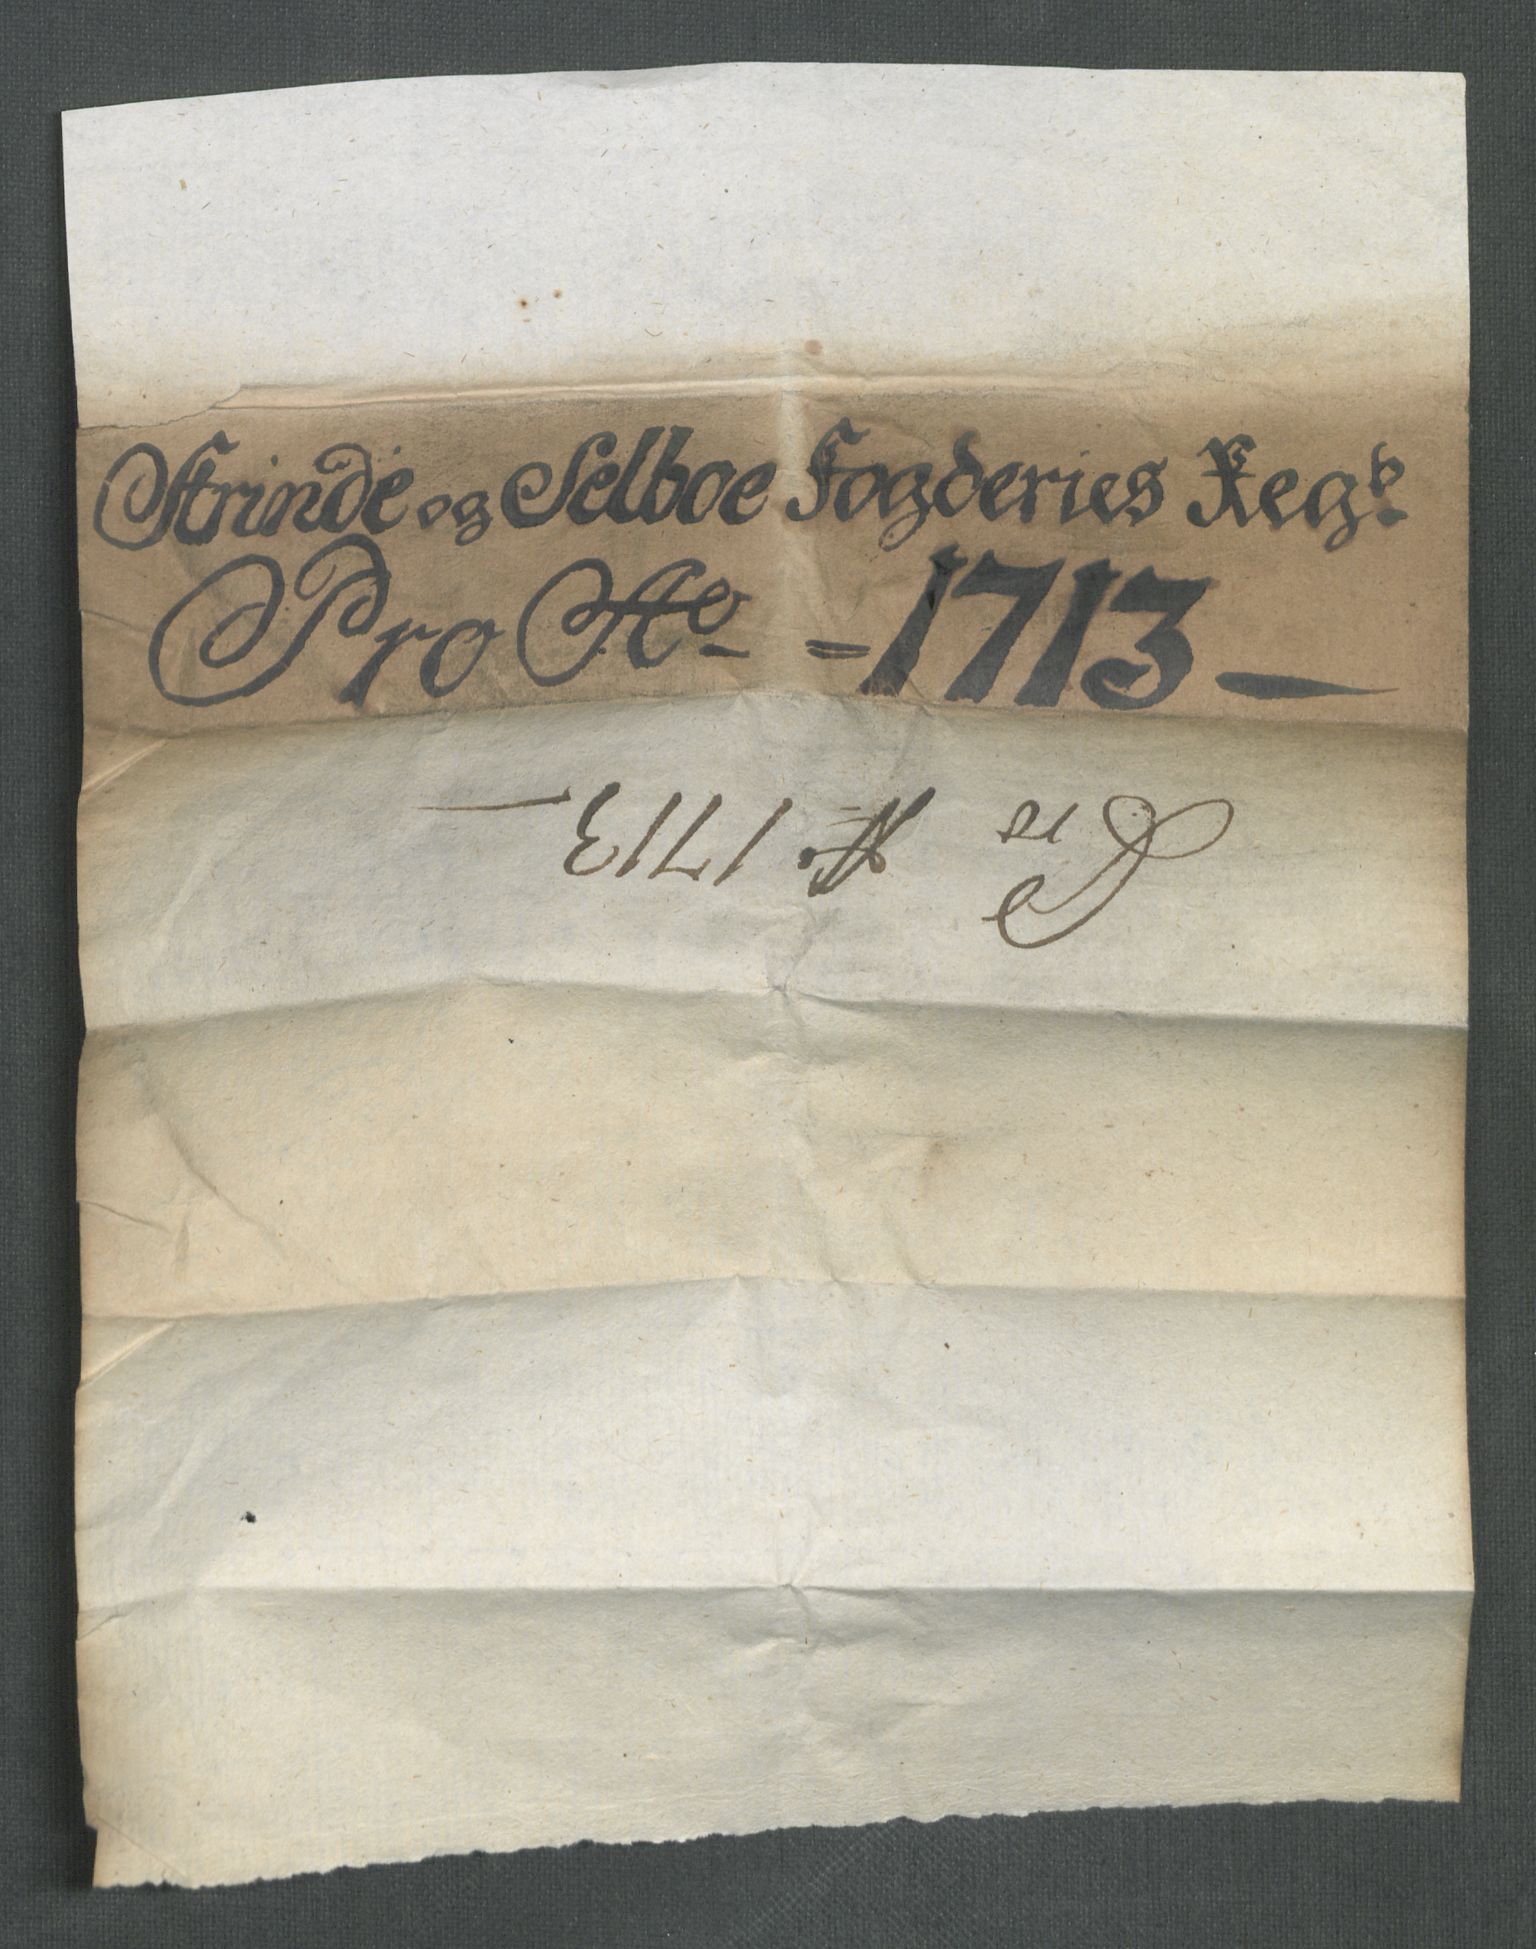 Strinde og Selboe Fogderies Regb.
Pro Ao. = 1713 —
Ao. 1713 —